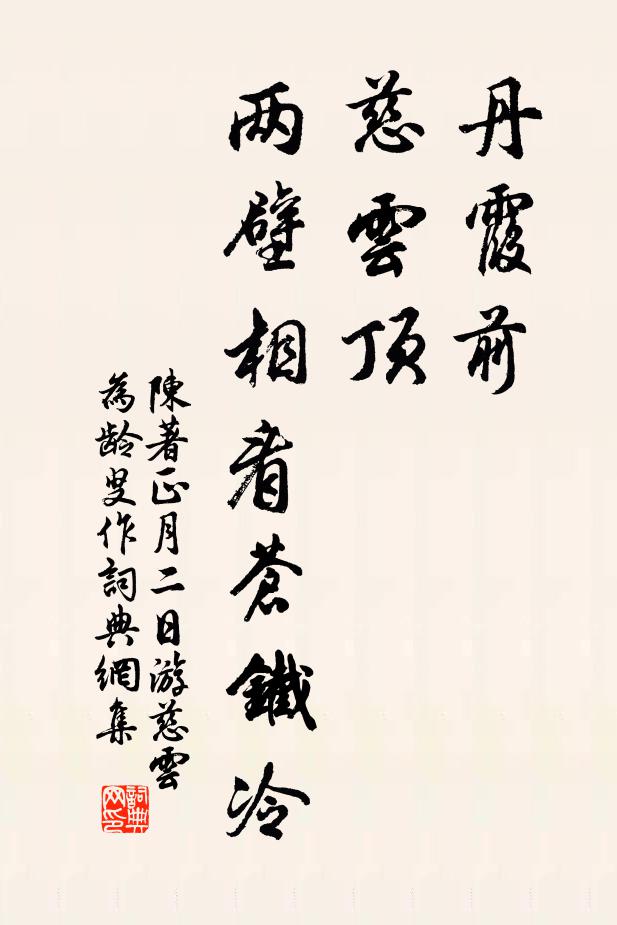 丹霞前
慈雲頂
两壁相看蒼鐵冷
陳著正月二日游慈雲
為齡叟作詞典網集
詞典网印